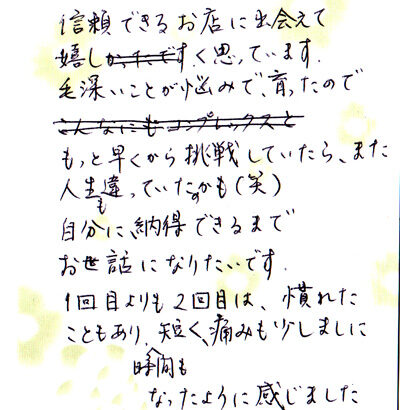 信頼できるお店に出会えて
嬉しかったですく思っています.
毛深いことが悩みで、育ったので
こんなにもコンプレックスと
もっと早くから挑戦していたら、また
人生も違っていたのかも(笑)
自分に納得できるまで
お世話になりたいです.
1回目よりも2回目は、慣れた
こともあり、短く、痛みも少しましに
瞬間も
なったように感じました